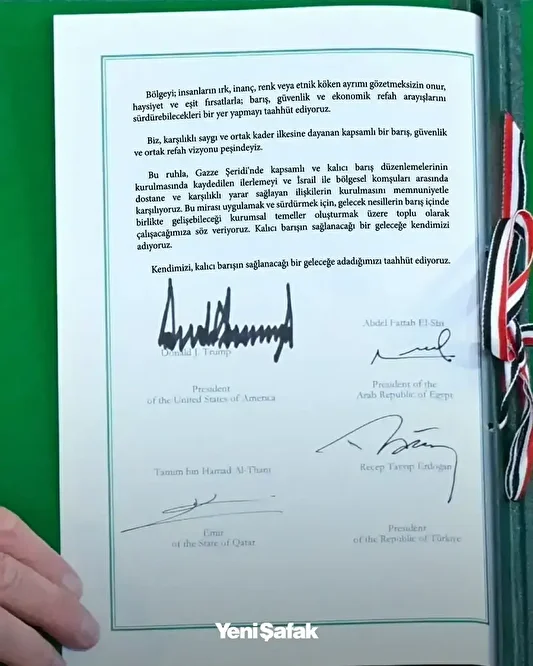 Bölgeyi; insanların ırk, inanç, renk veya etnik köken ayrımı gözetmeksizin onur,
haysiyet ve eşit fırsatlarla; barış, güvenlik ve ekonomik refah arayışlarını
sürdürebilecekleri bir yer yapmayı taahhüt ediyoruz.
Biz, karşılıklı saygı ve ortak kader ilkesine dayanan kapsamlı bir barış, güvenlik
ve ortak refah vizyonu peşindeyiz.
Bu ruhla, Gazze Şeridi'nde kapsamlı ve kalıcı barış düzenlemelerinin
kurulmasında kaydedilen ilerlemeyi ve İsrail ile bölgesel komşuları arasında
dostane ve karşılıklı yarar sağlayan ilişkilerin kurulmasını memnuniyetle
karşılıyoruz. Bu mirası uygulamak ve sürdürmek için, gelecek nesillerin barış içinde
birlikte gelişebileceği kurumsal temeller oluşturmak üzere toplu olarak
çalışacağımıza söz veriyoruz. Kalıcı barışın sağlanacağı bir geleceğe kendimizi
adıyoruz.
Kendimizi, kalıcı barışın sağlanacağı bir geleceğe adadığımızı taahhüt ediyoruz.
Donald J. Trump
President
of the United States of America
Abdel Fattah El-Sisi
President of the
Arab Republic of Egypt
Tamim bin Hamad Al-Thani
Emir
of the State of Qatar
Recep Tayyip Erdoğan
President
of the Republic of Türkiye
YeniŞafak